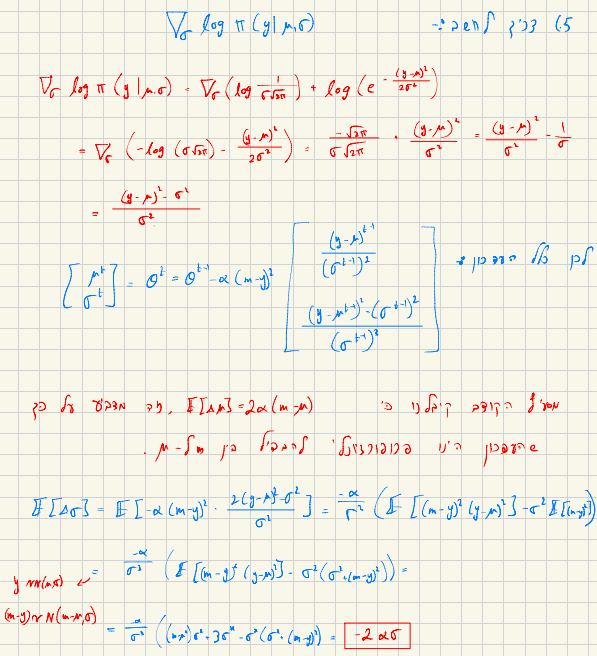 5) צריך לחשב :- ∇_σ log π(y|μ,σ)
∇_σ log π(y|μ,σ) = ∇_σ (log 1/(σ√2π) + log(e^{-(y-μ)²/2σ²})
= ∇_σ (-log(σ√2π) - (y-μ)²/2σ²) = -√2π/(σ√2π) + (y-μ)²/σ² = (y-μ)²/σ² - 1/σ
= ((y-μ)² - σ²)/σ²
לכן כלל העדכון :
[μ^t σ^t] = θ^t = θ^{t-1} - α(m-y)² [(y-μ)^{t-1}/(σ^{t-1})² ((y-μ^{t-1})² - (σ^{t-1})²)/(σ^{t-1})³]
מסעיף הקודם קיבלנו כי E[Δμ] = 2α(m-μ), זה מצביע על כך
שהעדכון הינו פרופורציונלי להבדל בין m ל-μ.
E[Δσ] = E[-α(m-y)² · (2(y-μ)²-σ²)/σ²] = -α/σ² (E[(m-y)²(y-μ)²] - σ² E[(m-y)²])
= -α/σ³ (E[(m-y)²(y-μ)²] - σ²(σ²+(m-y)²)) =
y ~ N(μ,σ)
(m-y) ~ N(m-μ,σ)
= -α/σ³ ((m-μ)²σ² + 3σ⁴ - σ²(σ² + (m-y)²) = -2ασ